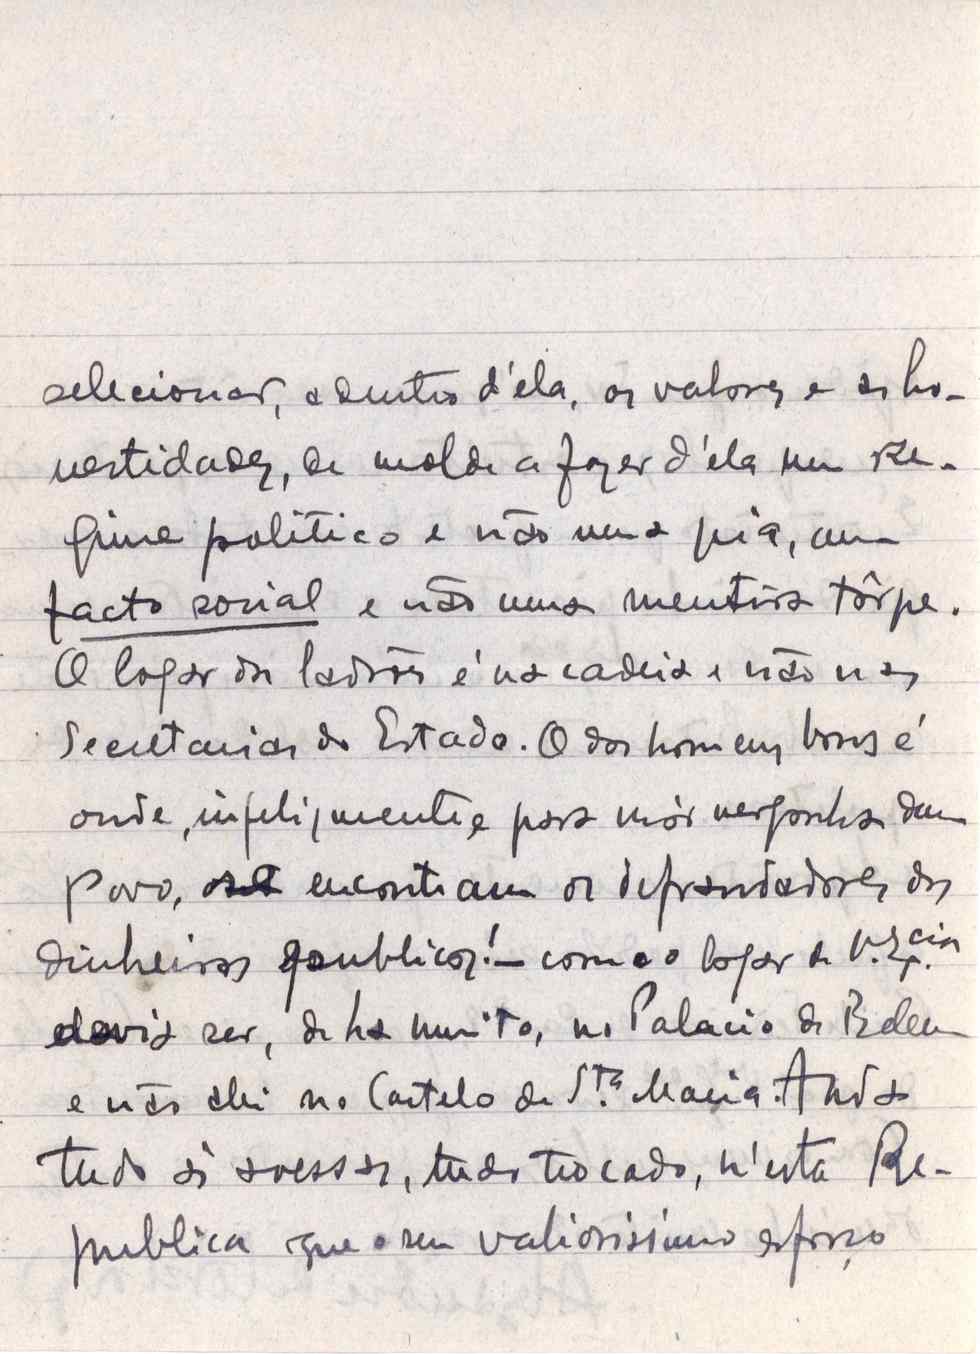 selecionar, adentro d'éla, os valores e as ho-
nestidades, de molde a fazer d'éla um Re-
gime politico e não uma pia, um
facto social e não uma mentira tôrpe.
O logar dos ladrões é na cadeia e não nas
Secretarias do Estado. O dos homens bons é
onde, infelizmente e para mór vergonha dum
Povo, se encontram os defraudadores dos
dinheiros publicos! — como o logar de V. Ex.cia
devia ser, de ha muito, no Palacio de Belem
e não ahi no Castelo de S.ta Maria. Anda
tudo ás avessas, tudo trocado, n'esta Re-
publica que o seu valiosissimo esforço